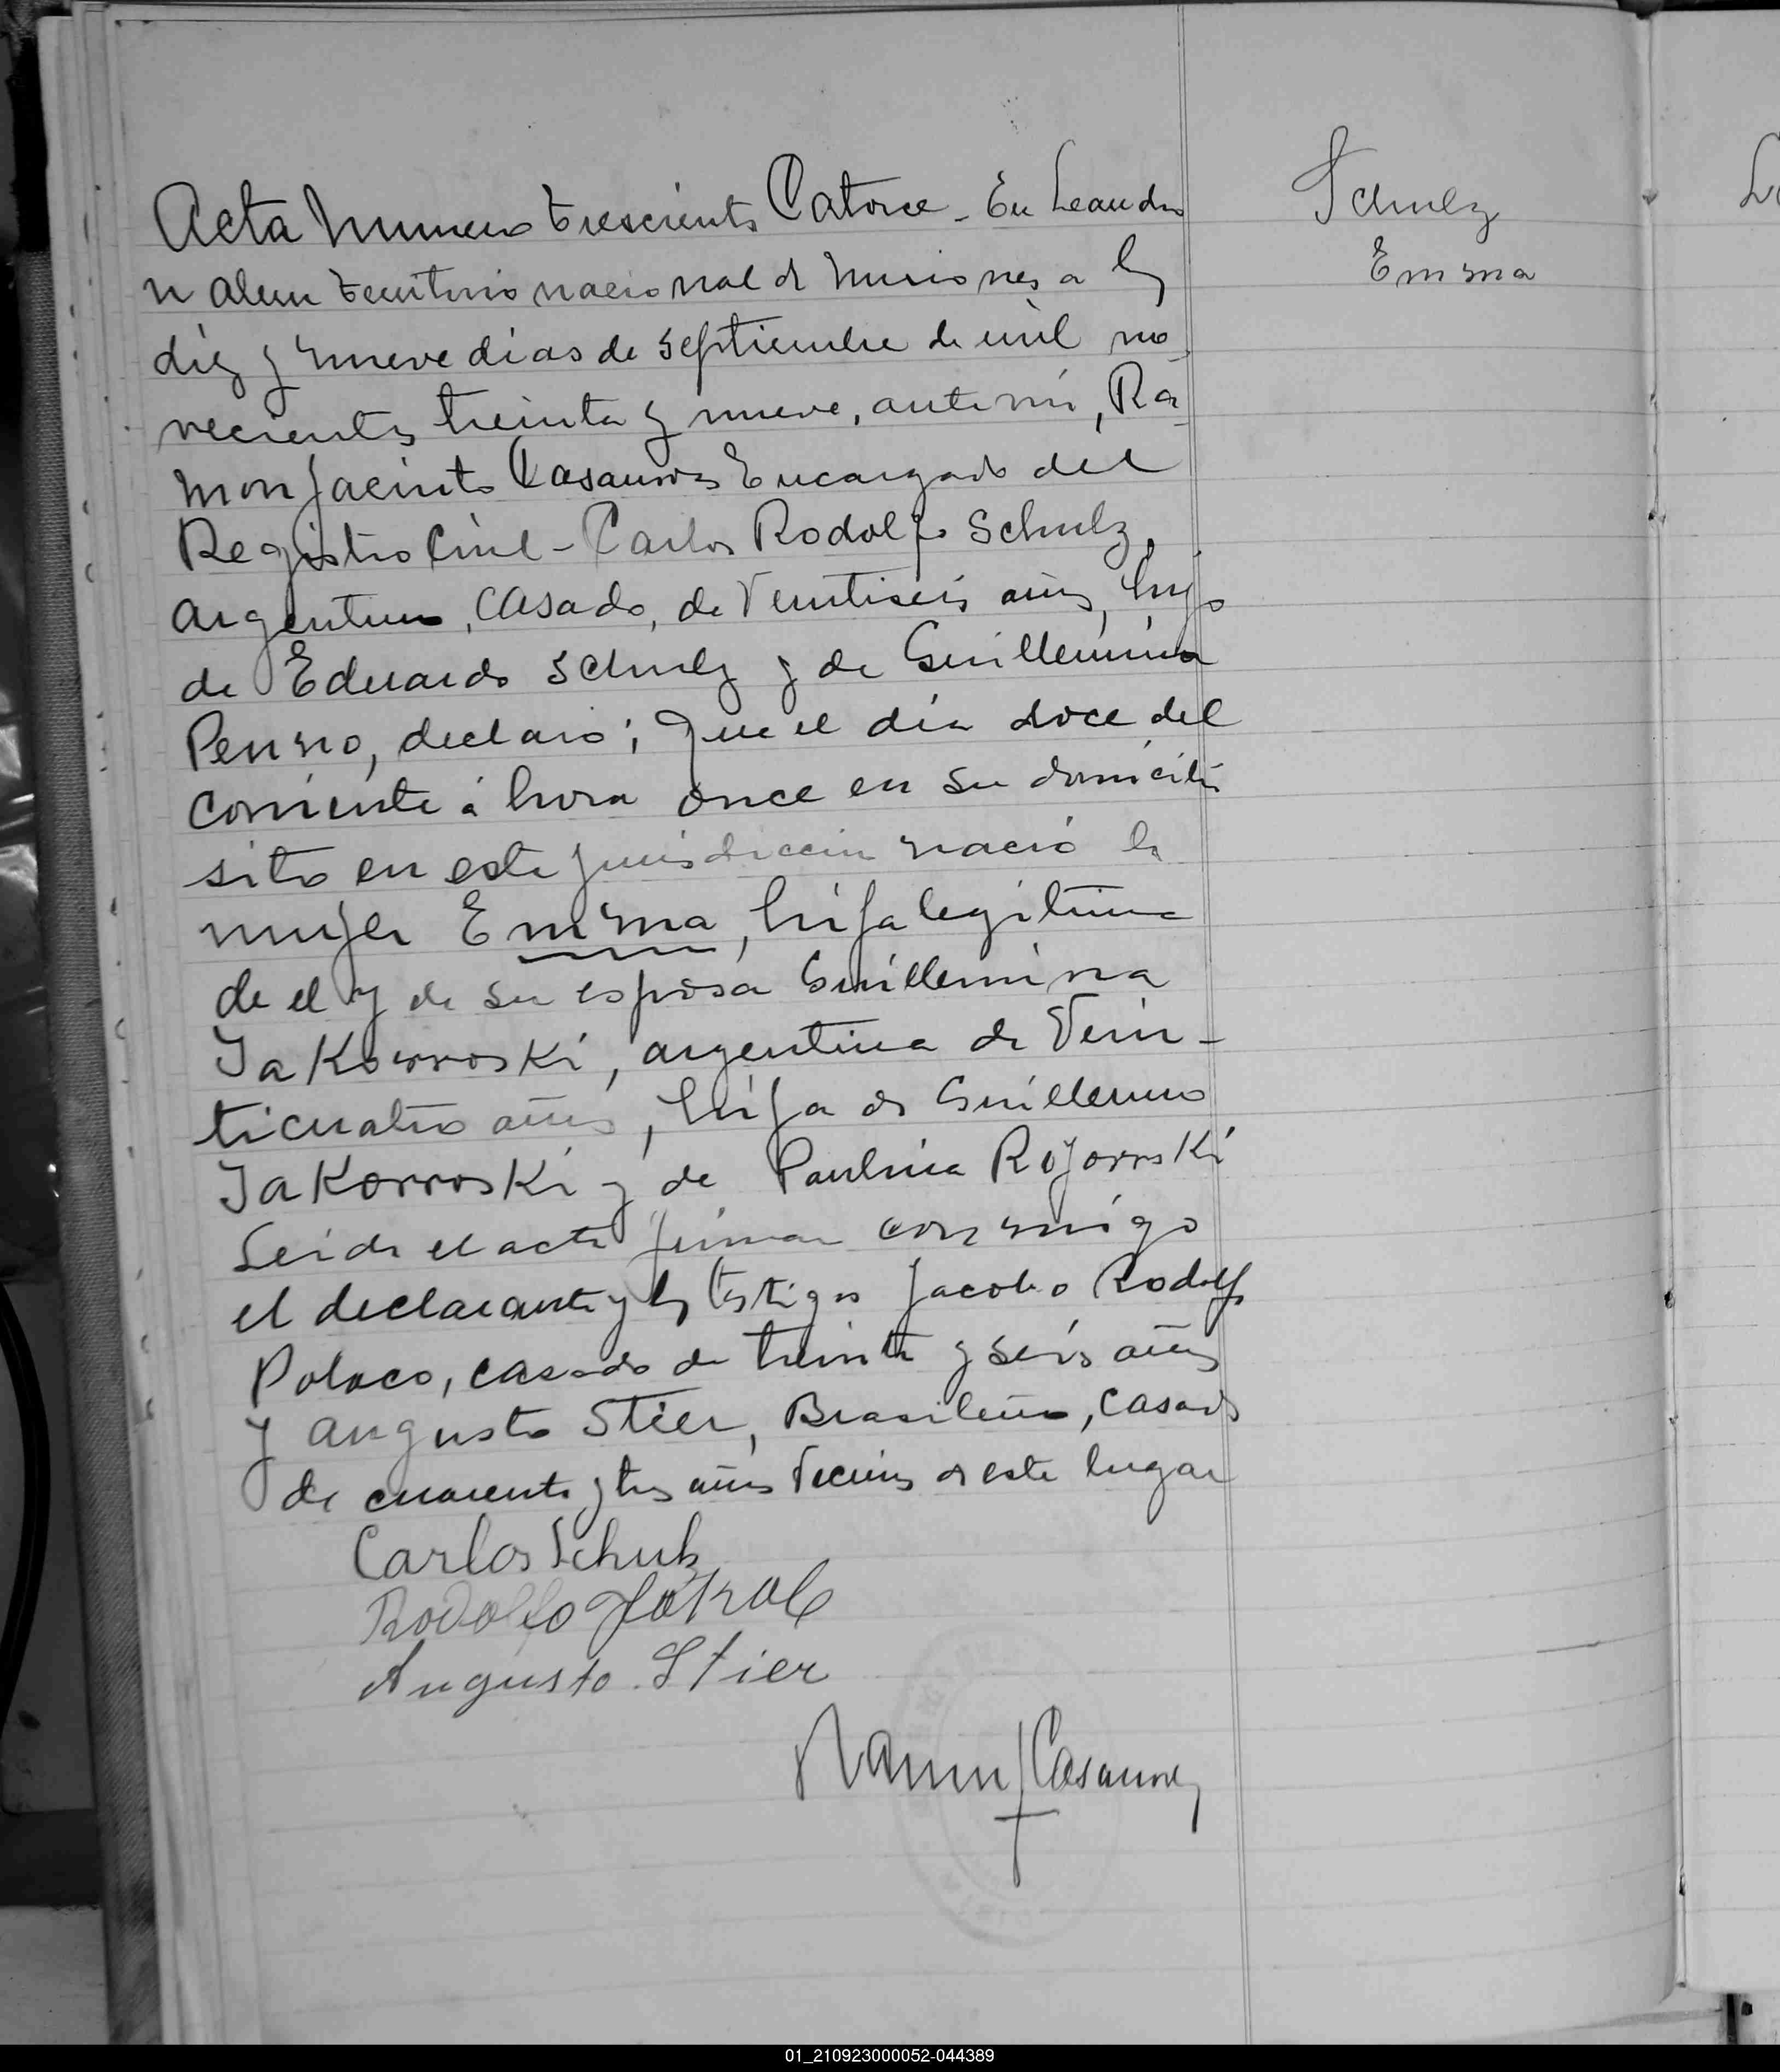 Acta Numero trescientos Catorce - En Leandro
N Alem territorio nacional de Misiones a los
diez y nueve dias de Septiembre de mil no-
vecientos treinta y nueve, ante mi, Ra-
mon Jacinto Casanova Encargado del
Registro Civil - Carlos Rodolfo Schulz,
argentino, casado, de Veintiseis años, hijo
de Eduardo Schulz y de Guillermina
Penno, declaró; Que el día doce del
corriente á hora once en su domicilio
sito en esta jurisdiccion nació la
mujer Emma, hija legitima
de el y de su esposa Guillermina
Jakowroski, argentina de Vein-
ticuatro años, hija de Guillermo
Jakorroski y de Paulina Rojorroski
Leida el acta firman conmigo
el declarante y los testigos Jacobo Rodolfo
Polaco, casado de treinta y seis años
y Augusto Stier, Brasileño, casado
de cuarenta y tres años Vecinos de este lugar
Carlos Schulz
Rodolfo
Augusto Stier
Ramon J Casanova
Schulz
Emma
01_210923000052-044389